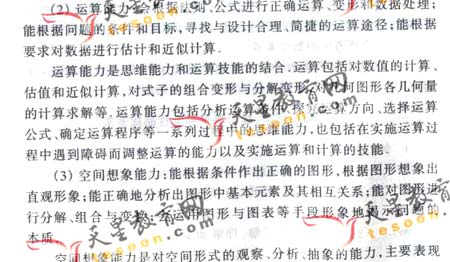 (2) 运算能力:会根据法则、公式进行正确运算、变形和数据处理;
能根据问题的条件和目标,寻找与设计合理、简捷的运算途径;能根据
要求对数据进行估计和近似计算.
运算能力是思维能力和运算技能的结合.运算包括对数值的计算、
估值和近似计算,对式子的组合变形与分解变形,对几何图形各几何量
的计算求解等,运算能力包括分析运算条件、探究运算方向、选择运算
公式、确定运算程序等一系列过程中的思维能力,也包括在实施运算过
程中遇到障碍而调整运算的能力以及实施运算和计算的技能.
(3) 空间想象能力:能根据条件作出正确的图形,根据图形想象出
直观形象;能正确地分析出图形中基本元素及其相互关系;能对图形进
行分解、组合与变换;会运用图形与图表等手段形象地揭示问题的
本质.
空间想象能力是对空间形式的观察、分析、抽象的能力,主要表现
天星教育网
tesoon.com
天星教育网
tesoon.com
天星教育网
tesoon.com
天星教育网
tesoon.com